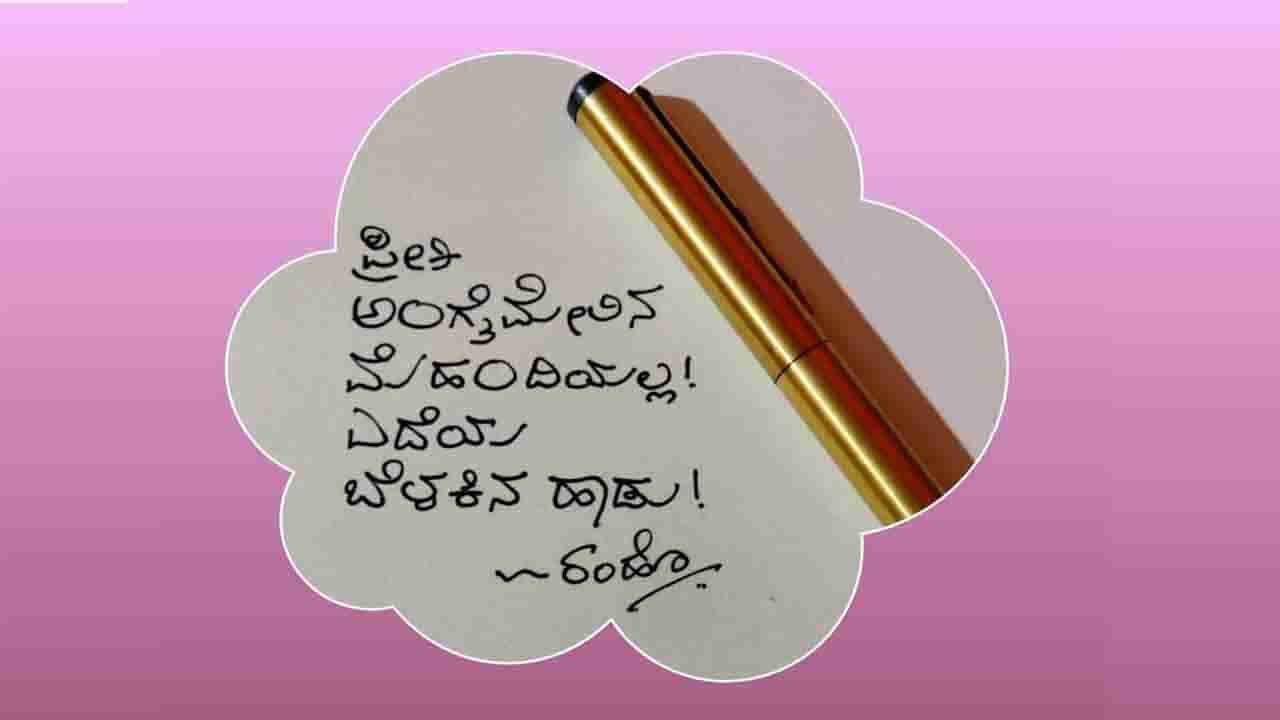 ಪ್ರೀತಿ
ಅಂಗೈಮೇಲಿನ
ಮೆಹಂದಿಯಲ್ಲ!
ಎದೆಯ
ಬೆಳಕಿನ ಹಾಡು!
~ರಂಹೊ